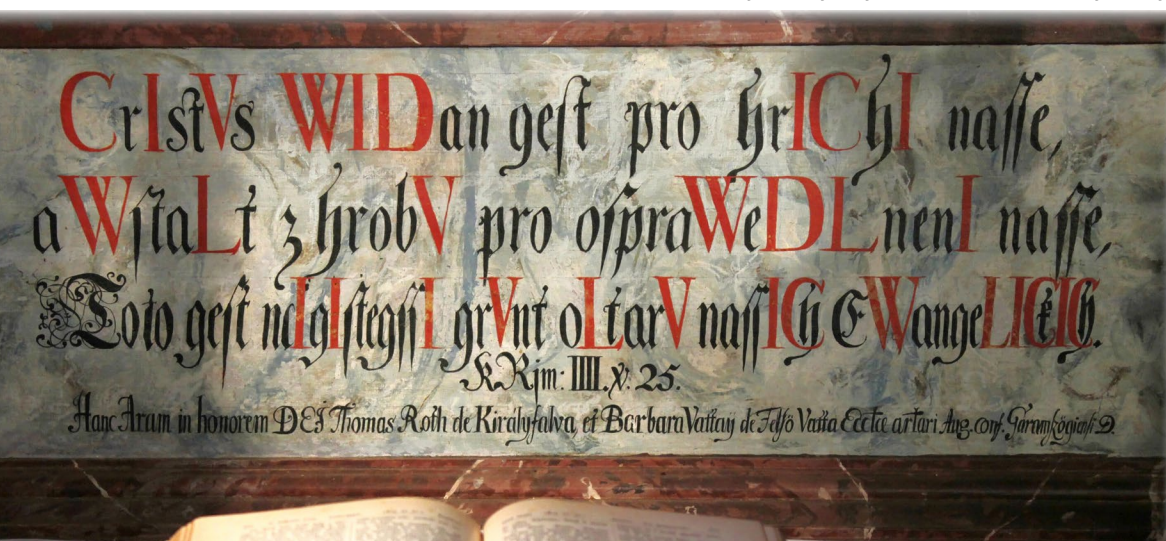 CrIstVs WIDan geſt pro hrIChI naſſe,
a WſtaLt z hrobV pro oſpraWeDLnenI naſſe,
Toto geſt nagIIſtegſſI grVnt oLtarV naſſICh EWangeLICkICh.
k Rjm: IIII. v: 25.
Hanc Aram in honorem DEI Thomas Roth de Királyfalva, et Barbara Vattaÿ de Felsö Vatta Eccłæ artari Aug. conf.